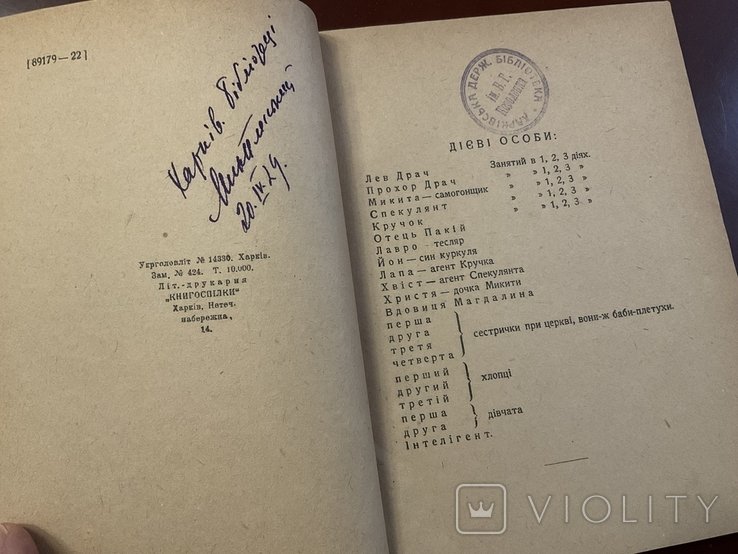 [89179—22]
Харків. Бібліотеці
20.IX.29.
Укрголовліт № 14330. Харків.
Зам. № 424. Т. 10.000.
Літ.-друкарня
„КНИГОСПІЛКИ"
Харків, Нетеч.
набережна,
14.
ХАРКІВСЬКА ДЕРЖ. БІБЛІОТЕКА
ім. В. Г.
ДІЄВІ ОСОБИ:
Лев Драч Занятий в 1, 2, 3 діях.
Прохор Драч „ „ 1, 2, 3 „
Микита — самогонщик „ „ 1, 2, 3 „
Спекулянт „ „ 1, 2, 3 „
Кручок
Отець Пакій
Лавро — тесляр
Йон — син куркуля
Лапа — агент Кручка
Хвіст — агент Спекулянта
Христя — дочка Микити
Вдовиця Магдалина
перша
друга
третя
четверта
сестрички при церкві, вони-ж баби-плетухи.
перший
другий
третій
хлопці
перша
друга
дівчата
Інтелігент.
VIOLITY